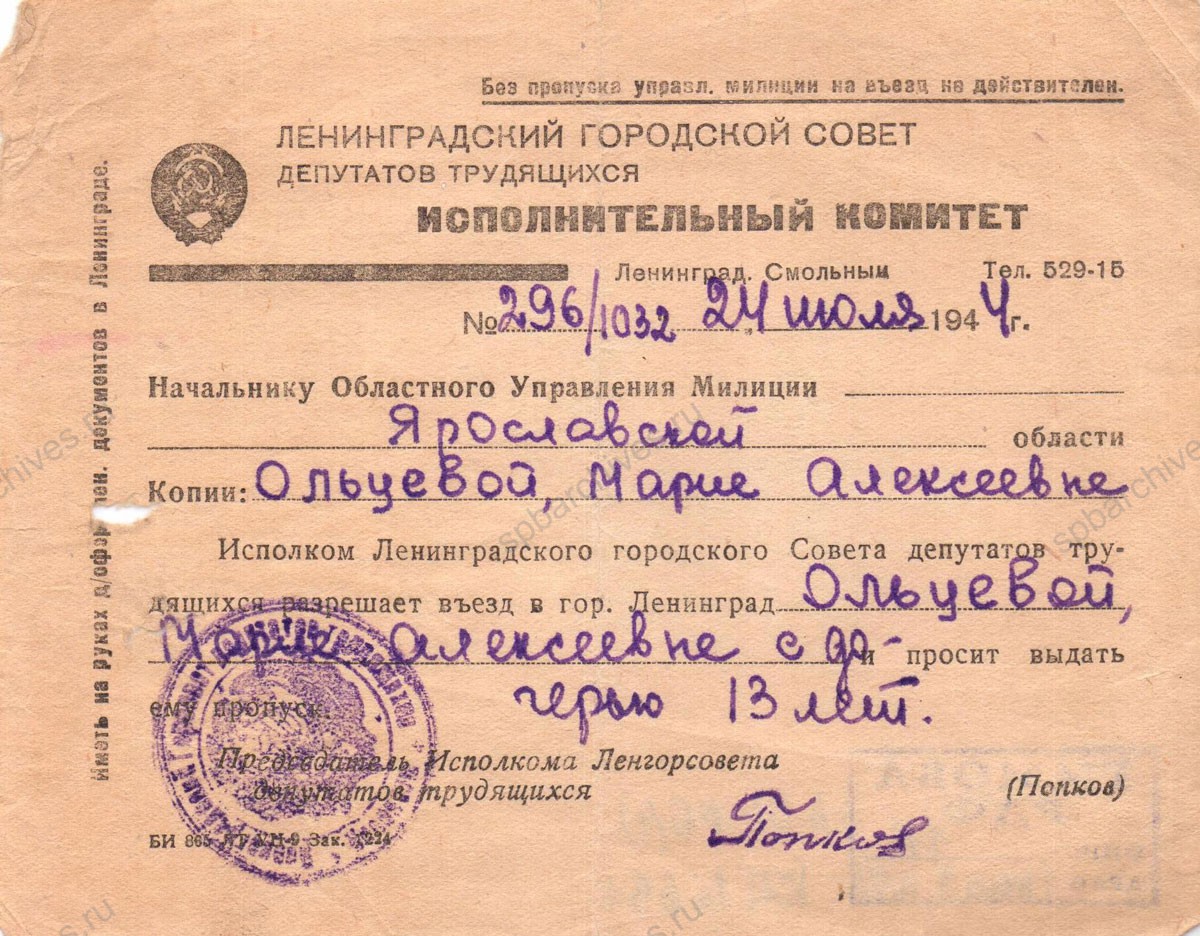 Без пропуска управл. милиции на въезд не действителен.
ЛЕНИНГРАДСКИЙ ГОРОДСКОЙ СОВЕТ
ДЕПУТАТОВ ТРУДЯЩИХСЯ
ИСПОЛНИТЕЛЬНЫЙ КОМИТЕТ
Ленинград. Смольный Тел. 529-15
№ 296/1032 24 июля 1944 г.
Начальнику Областного Управления Милиции
Ярославской области
Копии: Ольцевой, Марие Алексеевне
Исполком Ленинградского городского Совета депутатов тру-
дящихся разрешает въезд в гор. Ленинград Ольцевой,
Марие Алексеевне с до- и просит выдать
ему пропуск. черью 13 лет.
Председатель Исполкома Ленгорсовета
депутатов трудящихся (Попков)
Попков
БИ 865 Зак. 1224
Иметь на руках д/офор лен. документов в Ленинграде.
spbarchives.ru